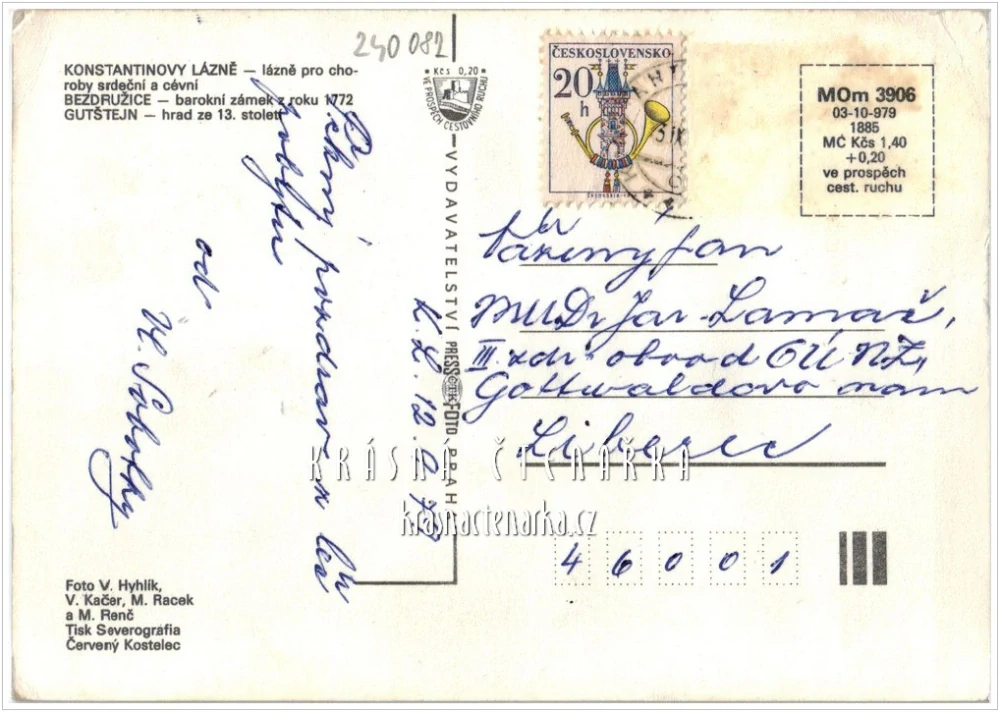 240 082
KONSTANTINOVY LÁZNĚ — lázně pro cho-
roby srdeční a cévní
BEZDRUŽICE — barokní zámek z roku 1772
GUTŠTEJN — hrad ze 13. století
Kčs 0,20
VE PROSPĚCH CESTOVNÍHO RUCHU
ČESKOSLOVENSKO
20
h
MOm 3906
03-10-979
1885
MČ Kčs 1,40
+0,20
ve prospěch
cest. ruchu
Pěkný pozdrav z láz
pobytu
od
Vl.
K. L. 12. 9.
VYDAVATELSTVÍ PRESSFOTO PRAHA
ČTK
Vážený pan
MUDr Jar. Lamač,
III. zdr. obvod OÚNZ,
Gottwaldovo nám
Liberec
KRÁSNÁ ČTENÁŘKA
krasnactenarka.cz
46001
Foto V. Hyhlík,
V. Kačer, M. Racek
a M. Renč
Tisk Severografia
Červený Kostelec